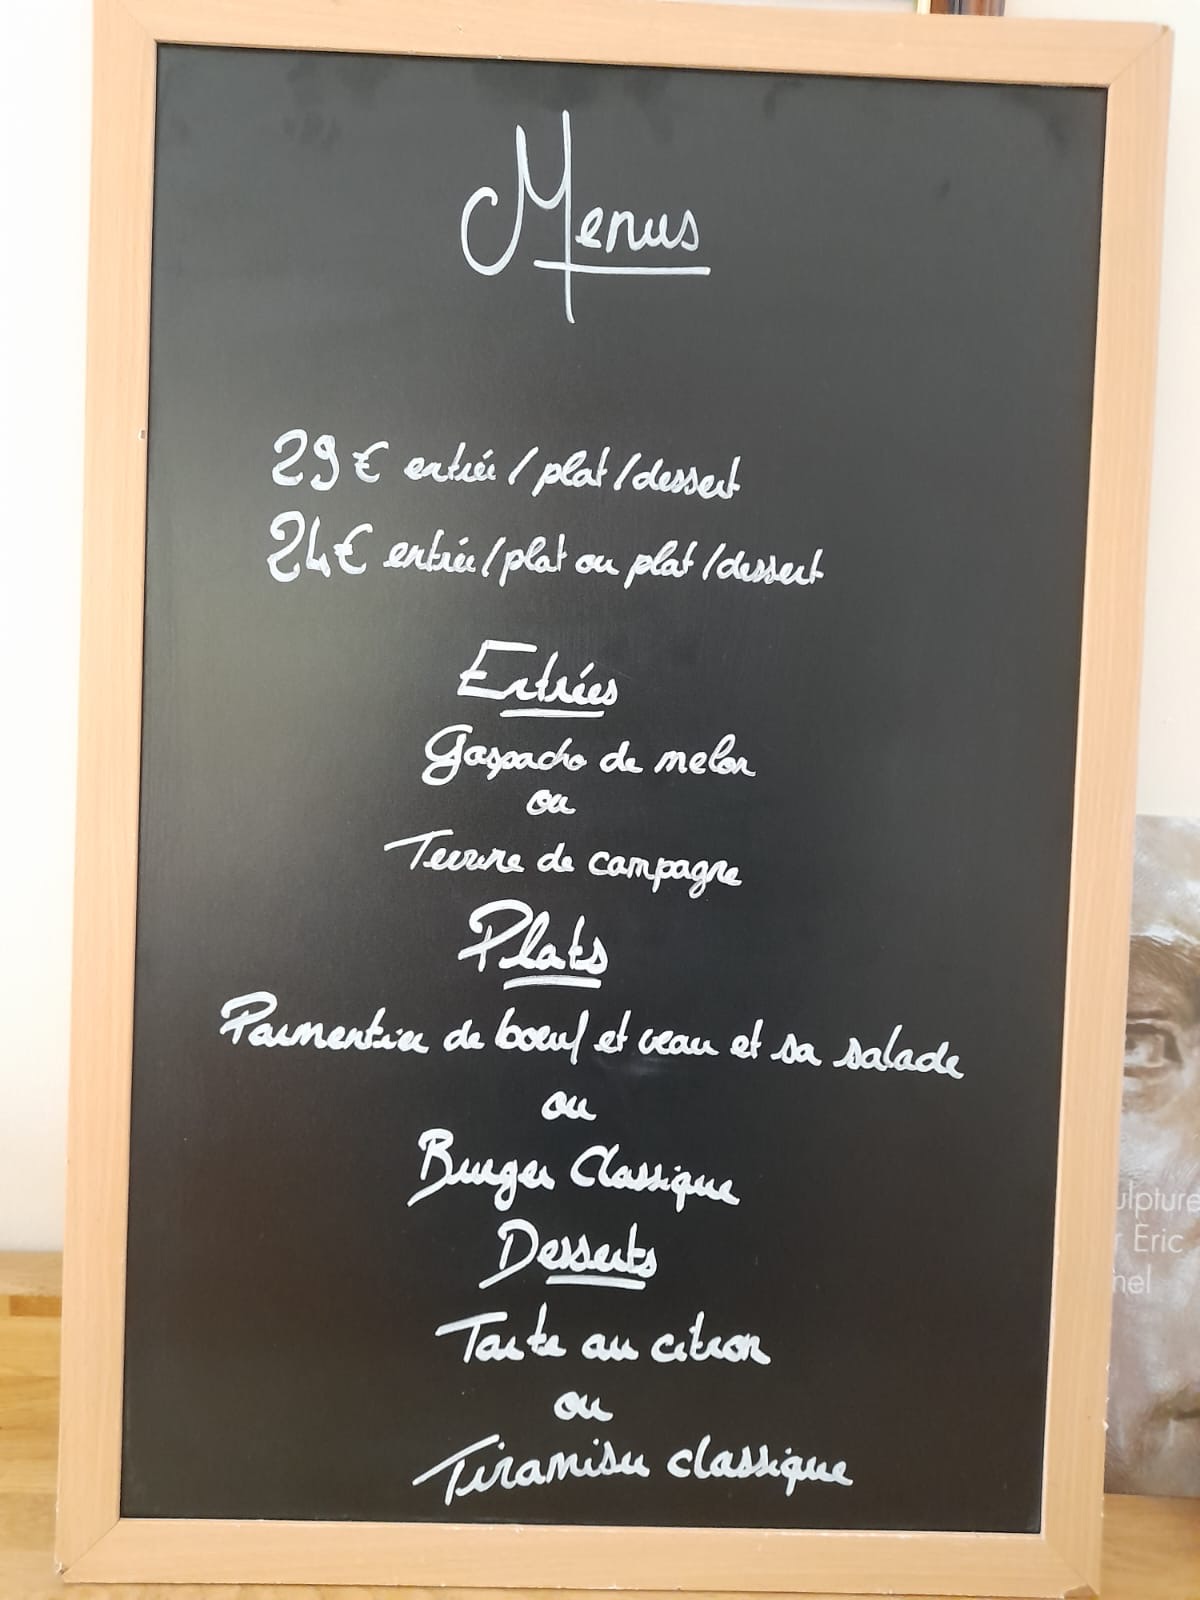 Menus
29€ entrée / plat / dessert
24€ entrée / plat ou plat / dessert
Entrées
Gaspacho de melon
ou
Terrine de campagne
Plats
Parmentier de boeuf et veau et sa salade
ou
Burger Classique
Desserts
Tarte au citron
ou
Tiramisu classique
ulpture
r Eric
nel